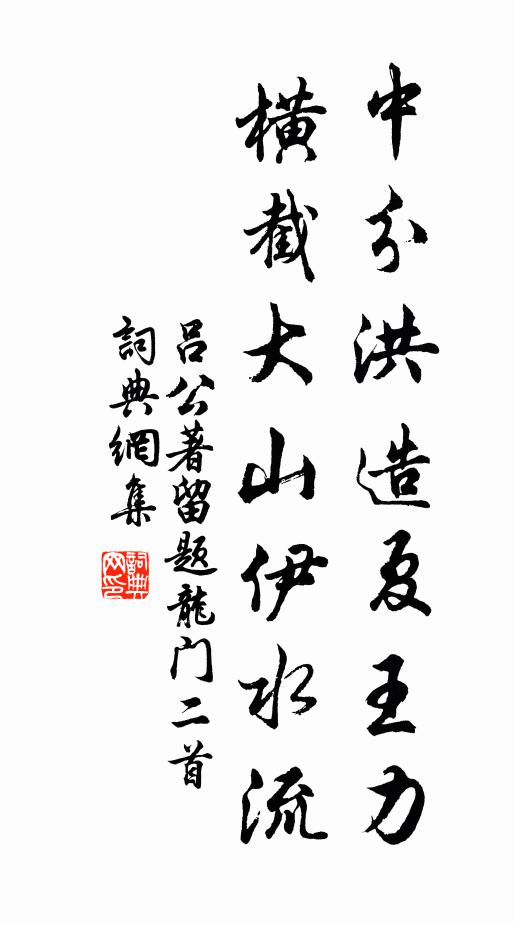 中分洪造夏王力
橫截大山伊水流
呂公著留题龍门二首
詞典網集
詞典网印